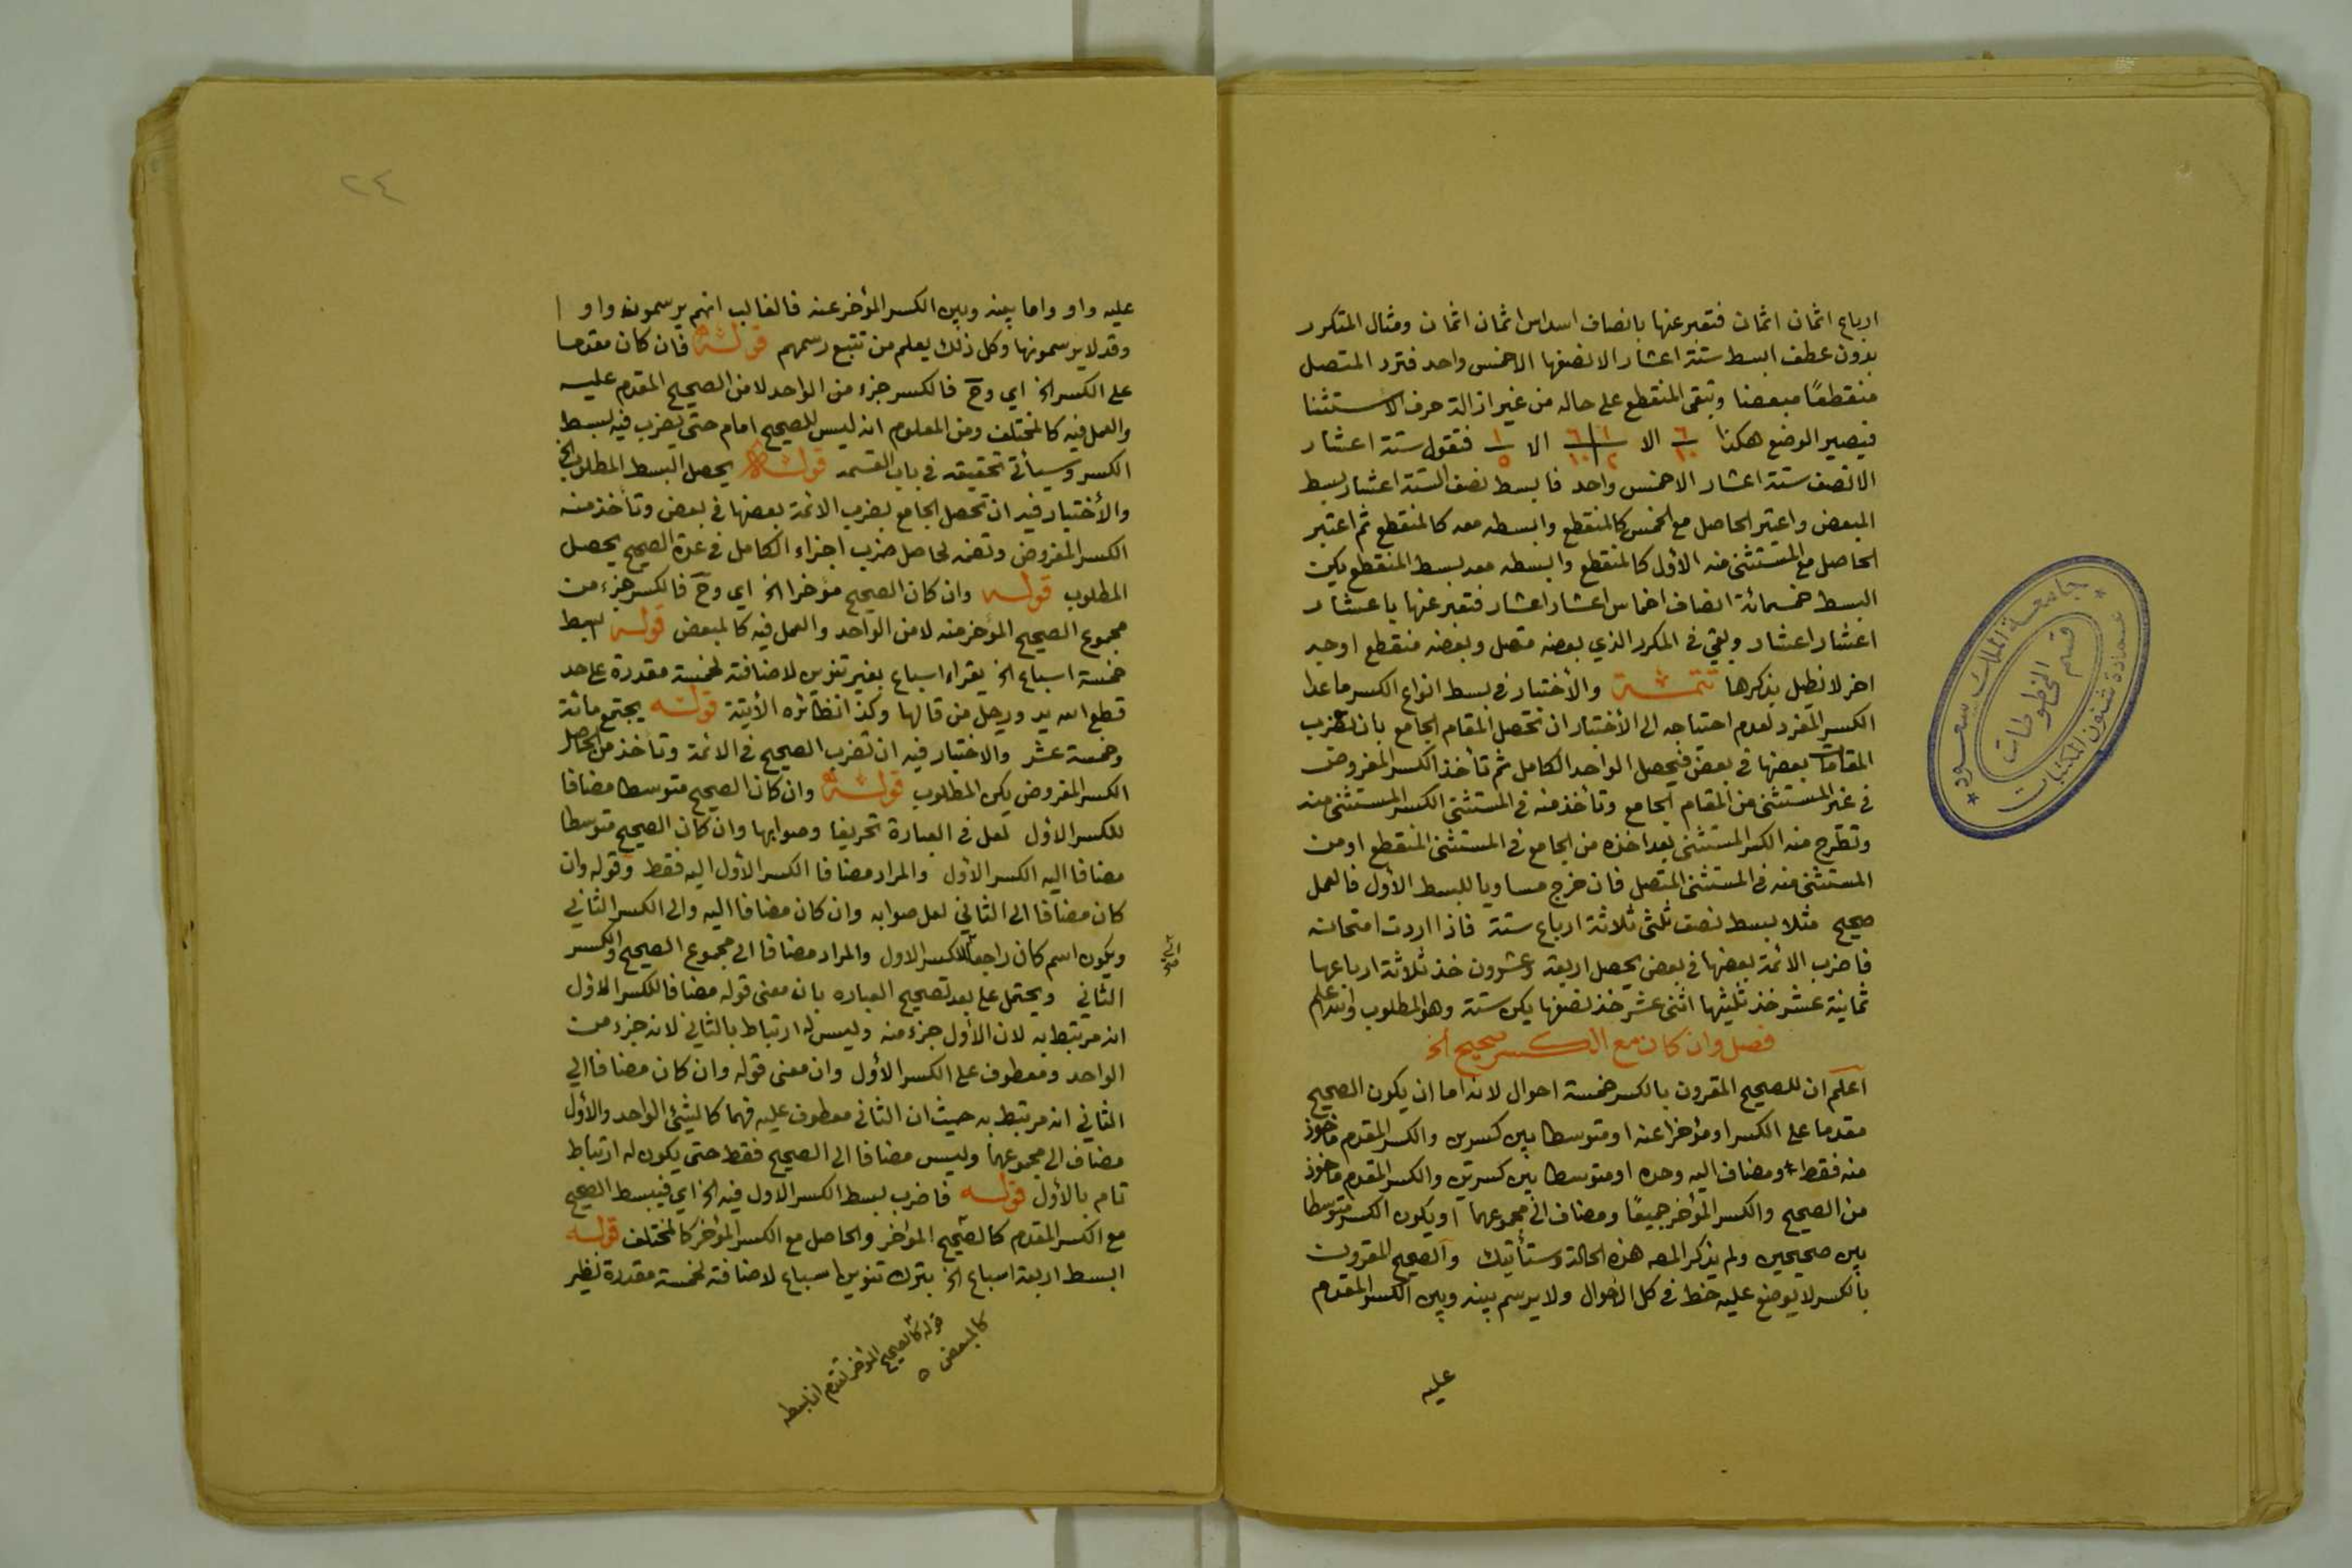 ارباع اثمان اثمان فتعبر عنها بانصاف اسداس اثمان اثمان ومثال المتكرر
بدون عطف ابسط ستة اعشار الا نصفها الا خمس واحد فترد المتصل
منقطعًا مبعضا وتبقى المنقطع على حاله من غير ازالة حرف الاستثنا
فيصير الوضع هكذا ٦/١٠ الا ١/٢ ٦/١٠ الا ١/٥ فتقول ستة اعشار
الا نصف ستة اعشار الا خمس واحد فابسط نصف الستة اعشار بسط
المبعض واعتبر الحاصل مع الخمس كالمنقطع وابسطه معه كالمنقطع ثم اعتبر
الحاصل مع المستثنى منه الأول كالمنقطع وابسطه معه بسط المنقطع يكن
البسط خمسمائة انصاف اخماس اعشار اعشار فتعبر عنها باعشار
اعشار اعشار وبقي في المكرر الذي بعضه متصل وبعضه منقطع اوجه
اخر لا نطيل بذكرها تتمة والأختبار في بسط انواع الكسر ما عدا
الكسر المفرد لعدم احتياجه الى الأختبار ان تحصل المقام الجامع بان تضرب
المقامات بعضها في بعض فيحصل الواحد الكامل ثم تأخذ الكسر المفروض
في غير المستثنى من المقام الجامع وتأخذ منه في المستثنى الكسر المستثنى منه
وتطرح منه الكسر المستثنى بعد اخذه من الجامع في المستثنى المنقطع او من
المستثنى منه في المستثنى المتصل فان خرج مساويا للبسط الأول فالعمل
صحيح مثلا بسط نصف ثلثى ثلاثة ارباع ستة فاذا اردت امتحانه
فاضرب الائمة بعضها في بعض يحصل اربعة وعشرون خذ ثلاثة ارباعها
ثمانية عشر خذ ثلثيها اثنى عشر خذ نصفها يكن ستة وهو المطلوب والله اعلم
فصل وان كان مع الكسر صحيح الخ
اعلم ان للصحيح المقرون بالكسر خمسة احوال لانه اما ان يكون الصحيح
مقدما على الكسر او مؤخرا عنه او متوسطا بين كسرين والكسر المقدم مأخوذ
منه فقط ومضاف اليه وحده او متوسطا بين كسرين والكسر المقدم مأخوذ
من الصحيح والكسر المؤخر جميعًا ومضاف الى مجموعهما او يكون الكسر متوسطا
بين صحيحين ولم يذكر المصه هذه الحالة وستأتيك والصحيح المقرون
بالكسر لا يوضع عليه خط في كل الاحوال ولا يرسم بينه وبين الكسر المقدم
عليه
جامعة الملك سعود
قسم المخطوطات
عمادة شئون المكتبات
٢٤
عليه واو واما بينه وبين الكسر المؤخر عنه فالغالب انهم يرسمون واوا
وقد لا يرسمونها وكل ذلك يعلم من تتبع رسمهم قوله فان كان مقدما
على الكسر الخ اي وح فالكسر جزء من الواحد لا من الصحيح المقدم عليه
والعمل فيه كالمختلف ومن المعلوم انه ليس للصحيح امام حتى يضرب فيه بسط
الكسر وسيأتي تحقيقه في باب القسمه قوله يحصل البسط المطلوب الخ
والأختبار فيه ان تحصل الجامع بضرب الائمة بعضها في بعض وتأخذ منه
الكسر المفروض وتضمه لحاصل ضرب اجزاء الكامل في عدة الصحيح يحصل
المطلوب قوله وان كان الصحيح مؤخرا الخ اي وح فالكسر جزء من
مجموع الصحيح المؤخر منه لا من الواحد والعمل فيه كالمبعض قوله ابسط
خمسة اسباع الخ يقراء اسباع بغير تنوين لاضافته لخمسة مقدرة على حد
قطع الله يد ورجل من قالها وكذا نظائره الأتية قوله يجتمع مائة
وخمسة عشر والاختبار فيه ان تضرب الصحيح في الائمة وتأخذ من الحاصل
الكسر المفروض يكن المطلوب قوله وان كان الصحيح متوسطا مضافا
للكسر الاول لعل في العبارة تحريفا وصوابها وان كان الصحيح متوسطا
مضافا اليه الكسر الأول والمراد مضافا الكسر الأول اليه فقط وقوله وان
كان مضافا الى الثاني لعل صوابه وان كان مضافا اليه والى الكسر الثاني
ويكون اسم كان راجعا للكسر الاول والمراد مضافا الى مجموع الصحيح والكسر
الثاني ويحتمل على بعد تصحيح العباره بان معنى قوله مضافا للكسر الأول
انه مرتبط به لان الأول جزء منه وليس له ارتباط بالثاني لانه جزء من
الواحد ومعطوف على الكسر الأول وان معنى قوله وان كان مضافا الى
الثاني انه مرتبط به حيث ان الثاني معطوف عليه فهما كالشئ الواحد والأول
مضاف الى مجموعهما وليس مضافا الى الصحيح فقط حتى يكون له ارتباط
تام بالأول قوله فاضرب بسط الكسر الاول فيه الخ اي فيبسط الصحيح
مع الكسر المقدم كالصحيح المؤخر والحاصل مع الكسر المؤخر كالمختلف قوله
ابسط اربعة اسباع الخ بترك تنوين اسباع لاضافته لخمسة مقدرة نظير
قوله كالصحيح المؤخر تقدم انا نبسطه
كالمبعض